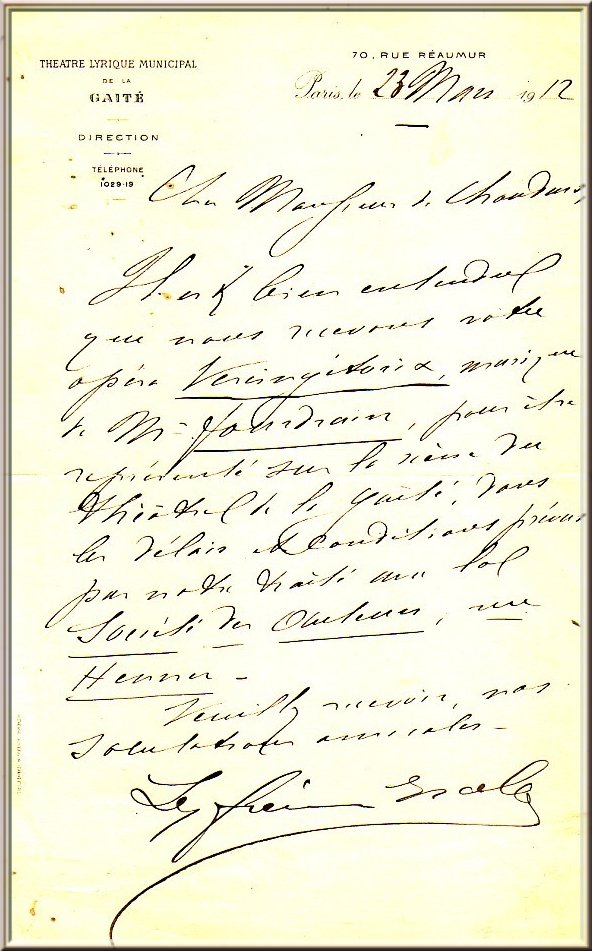 THEATRE LYRIQUE MUNICIPAL
DE LA
GAITÉ
DIRECTION
TÉLÉPHONE
1029-19
70, RUE RÉAUMUR
Paris, le 23 Mars 1912
Cher Monsieur de
Il est bien entendu
que nous recevons votre
opéra Vercingétorix, musique
de Mr Fourdrain, pour être
représenté sur la scène du
théâtre de la Gaîté, dans
les délais et conditions prévus
par notre traité avec la
Société des Auteurs, rue
Henner -
Veuillez recevoir nos
salutations amicales -
Les frères Isola